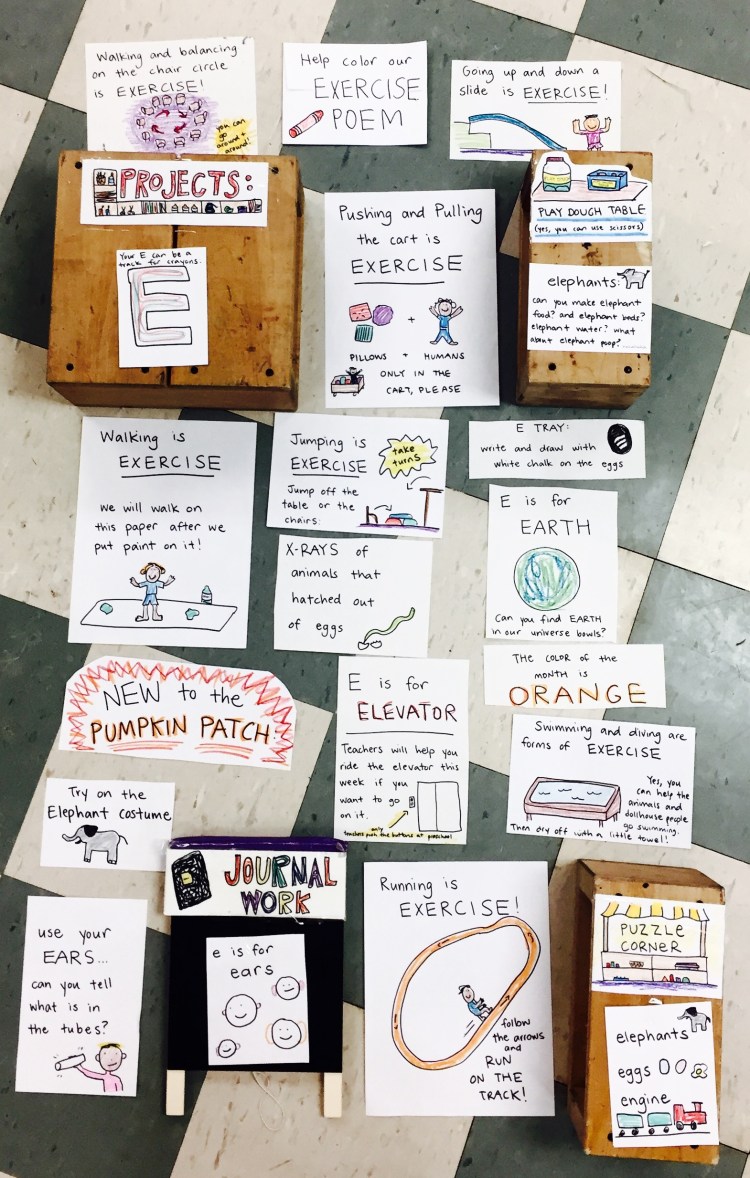 Walking and balancing
on the chair circle
is EXERCISE!
you can
go
around +
around!
Help color our
EXERCISE
POEM
Going up and down a
slide is EXERCISE!
PROJECTS:
Your E can be a
track for crayons.
E
Pushing and Pulling
the cart is
EXERCISE
+
PILLOWS + HUMANS
ONLY IN THE
CART, PLEASE
PLAY DOUGH TABLE
(yes, you can use scissors)
elephants:
can you make elephant
food? and elephant beds?
elephant water? what
about elephant poop?
Walking is
EXERCISE
We will walk on
this paper after we
put paint on it!
Jumping is
EXERCISE
take
turns
Jump off the
table or the
chairs:
E TRAY:
write and draw with
white chalk on the eggs
X-RAYS of
animals that
hatched out
of eggs
E is for
EARTH
Can you find EARTH
in our universe bowls?
NEW to the
PUMPKIN PATCH
E is for
ELEVATOR
Teachers will help you
ride the elevator this
week if you
want to go
on it.
only
teachers push the buttons at preschool
THE COLOR of the
MONTH IS
ORANGE
Swimming and diving are
forms of EXERCISE
Yes, you
can help the
animals and
dollhouse people
go swimming.
Then dry off with a little towel!
Try on the
Elephant costume
JOURNAL
WORK
e is for
ears
use your
EARS...
can you tell
what is in
the tubes?
Running is
EXERCISE!
follow
the arrows
and
RUN
ON THE
TRACK!
PUZZLE
CORNER
elephants
eggs
engine